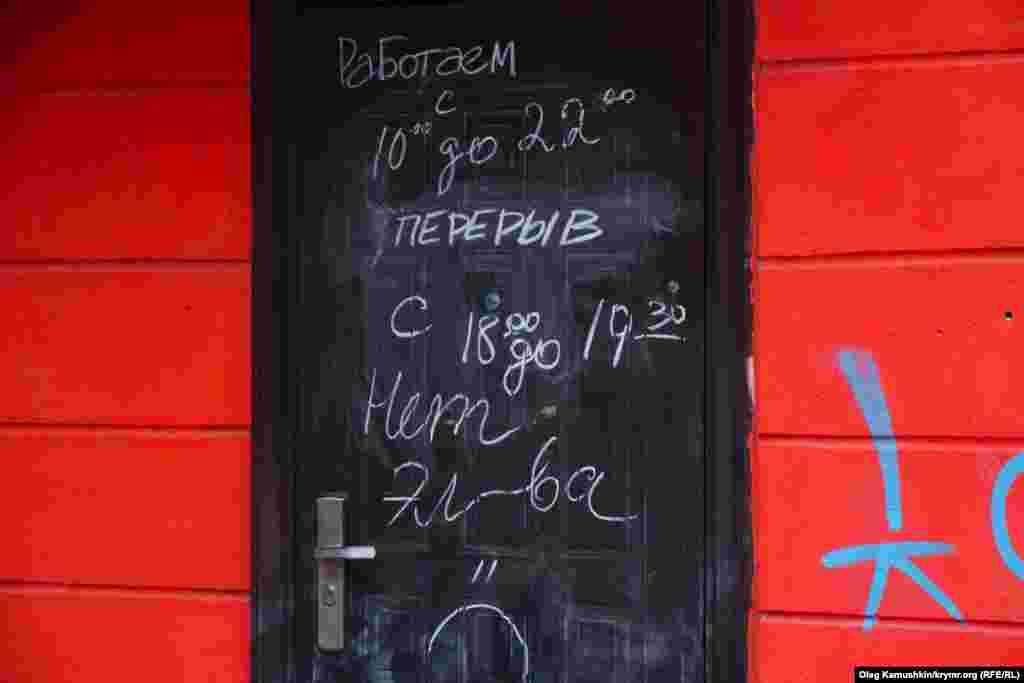 Работаем
с
10.00 до 22.00
ПЕРЕРЫВ
с 18.00 до 19.30
Нет
Эл-ва
Oleg Kamushkin/krymr.org (RFE/RL)